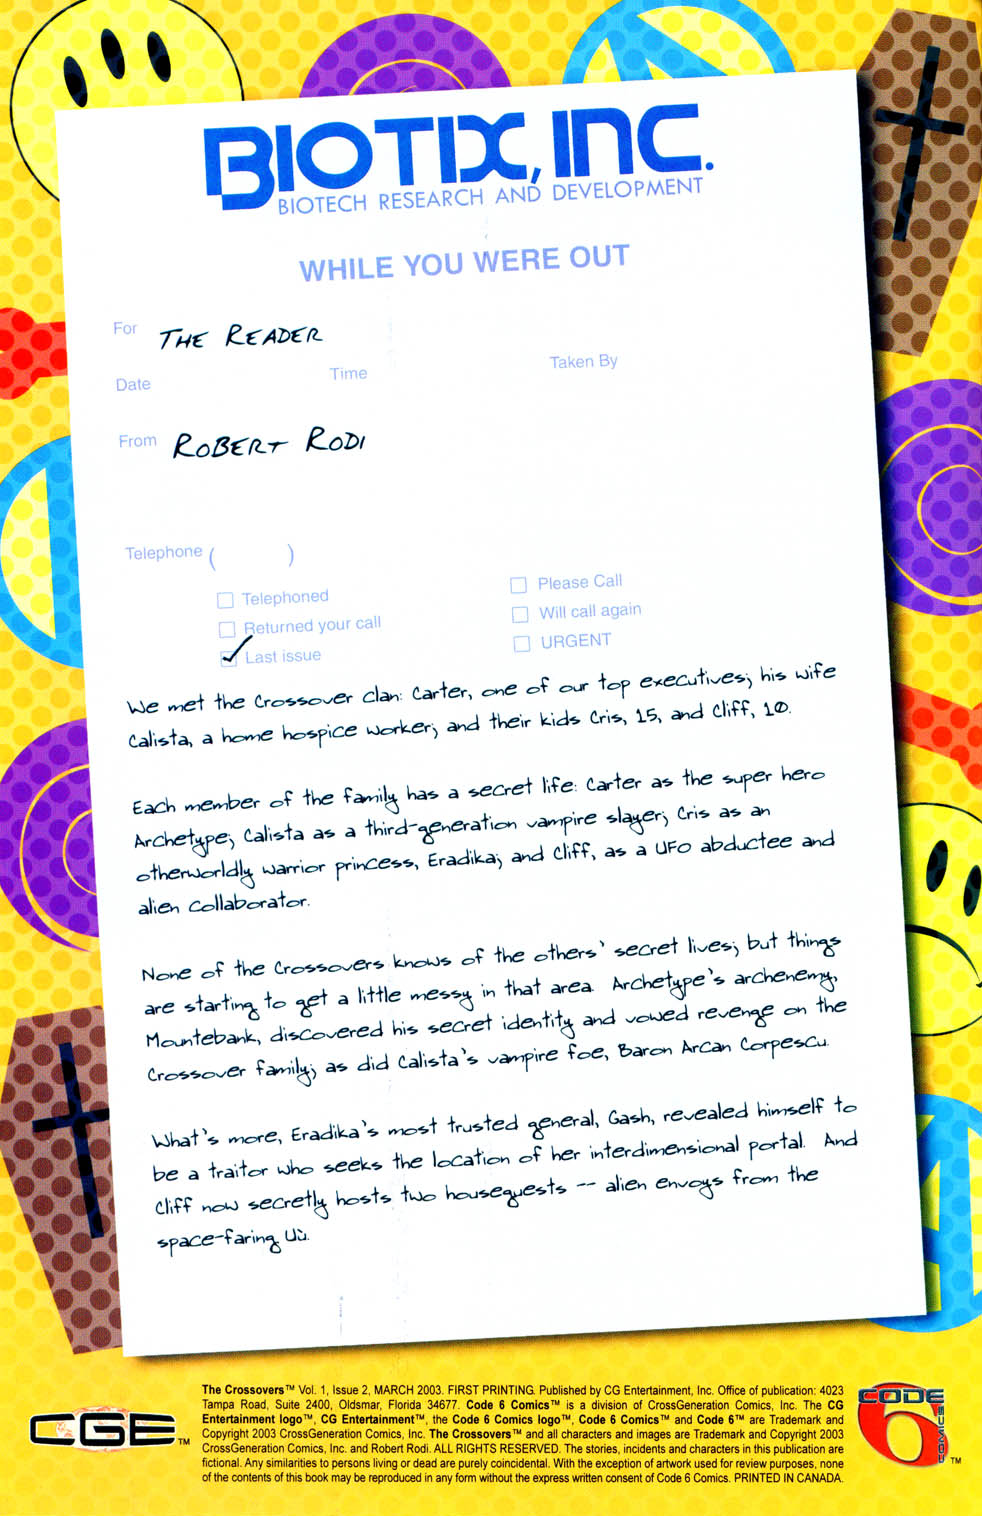 BIOTIX, INC.
BIOTECH RESEARCH AND DEVELOPMENT
WHILE YOU WERE OUT
For THE READER
Date Time Taken By
From ROBERT RODI
Telephone ( )
Telephoned
Returned your call
Last issue
Please Call
Will call again
URGENT
We met the Crossover clan: Carter, one of our top executives; his wife
Calista, a home hospice worker; and their kids Cris, 15, and Cliff, 10.
Each member of the family has a secret life: Carter as the super hero
Archetype; Calista as a third-generation vampire slayer; Cris as an
otherworldly warrior princess, Eradika; and Cliff, as a UFO abductee and
alien collaborator.
None of the Crossovers knows of the others' secret lives; but things
are starting to get a little messy in that area. Archetype's archenemy,
Mountebank, discovered his secret identity and vowed revenge on the
Crossover family; as did Calista's vampire foe, Baron Arcan Corpescu.
What's more, Eradika's most trusted general, Gash, revealed himself to
be a traitor who seeks the location of her interdimensional portal. And
Cliff now secretly hosts two houseguests -- alien envoys from the
space-faring Uù.
CGE™
The Crossovers™ Vol. 1, Issue 2, MARCH 2003. FIRST PRINTING. Published by CG Entertainment, Inc. Office of publication: 4023
Tampa Road, Suite 2400, Oldsmar, Florida 34677. Code 6 Comics™ is a division of CrossGeneration Comics, Inc. The CG
Entertainment logo™, CG Entertainment™, the Code 6 Comics logo™, Code 6 Comics™ and Code 6™ are Trademark and
Copyright 2003 CrossGeneration Comics, Inc. The Crossovers™ and all characters and images are Trademark and Copyright 2003
CrossGeneration Comics, Inc. and Robert Rodi. ALL RIGHTS RESERVED. The stories, incidents and characters in this publication are
fictional. Any similarities to persons living or dead are purely coincidental. With the exception of artwork used for review purposes, none
of the contents of this book may be reproduced in any form without the express written consent of Code 6 Comics. PRINTED IN CANADA.
CODE
6
COMICS
™